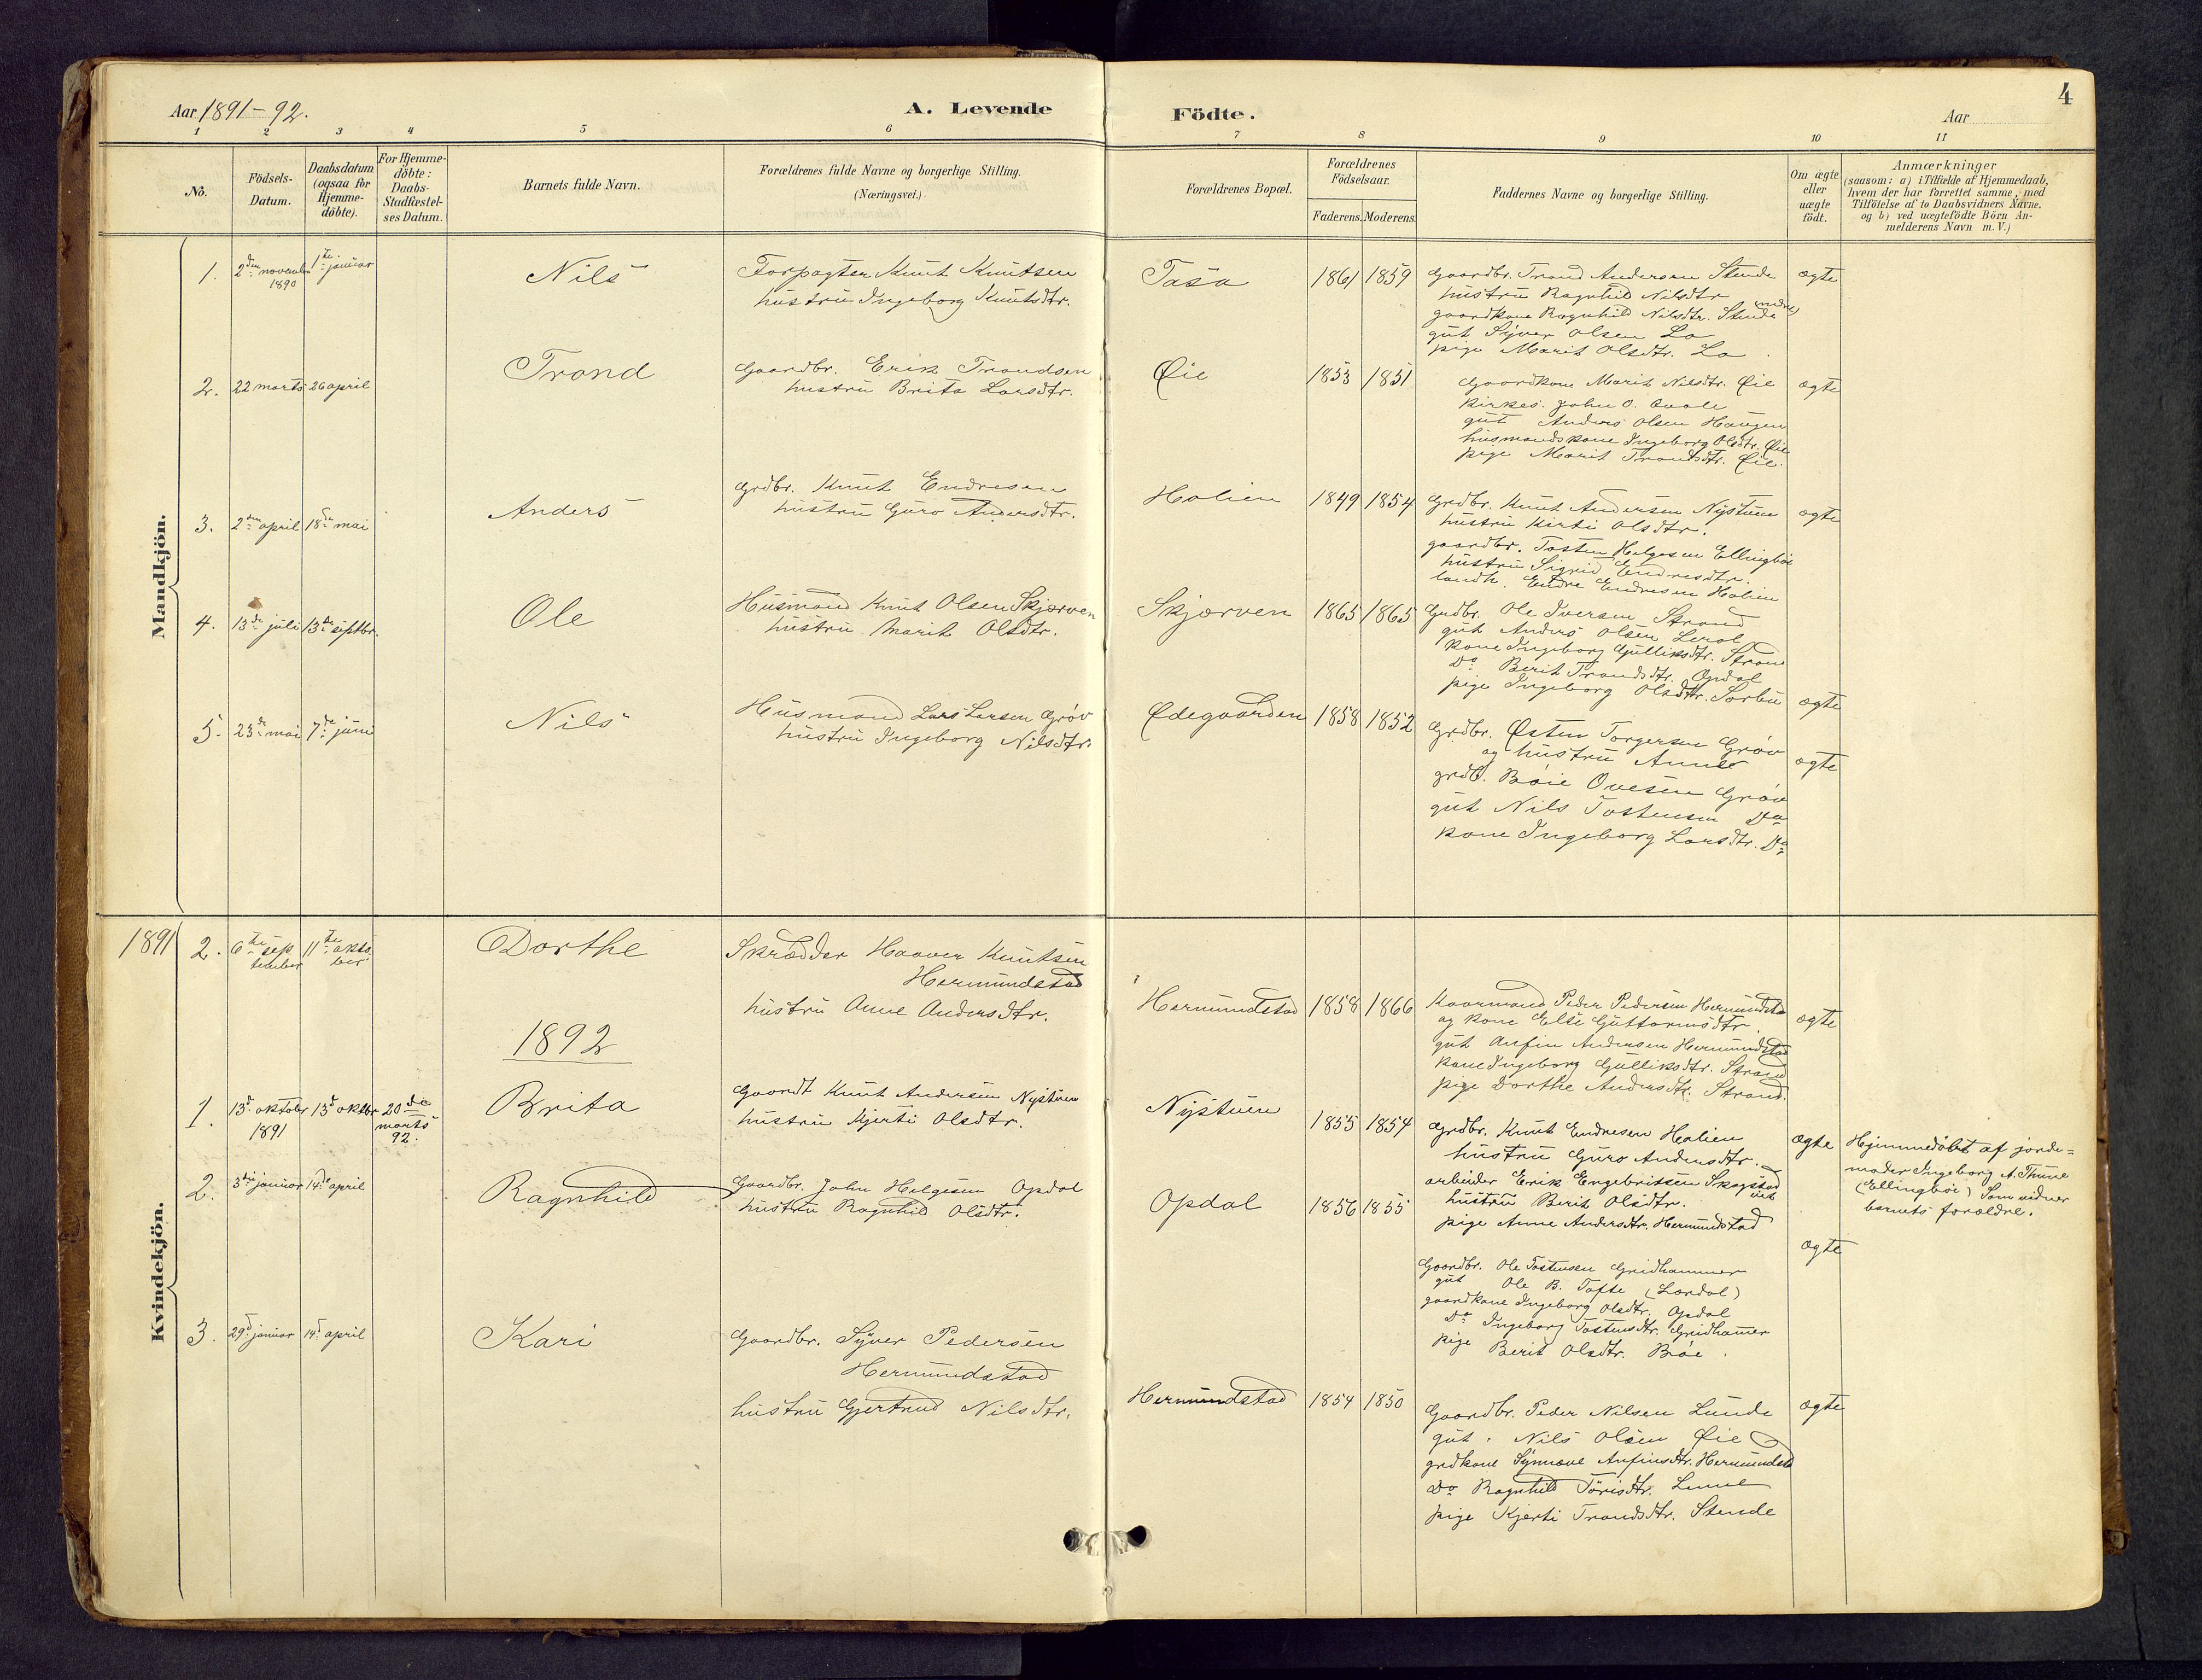 Aar 1891-92.
A. Levende
Födte.
Aar
4
1 2 3 4 5 6 7 8 9 10 11
No.
Födsels-
Datum.
Daabsdatum
(ogsaa för
Hjemme-
döbte).
For Hjemme-
döbte:
Daabs-
Stadfæstel-
ses Datum.
Barnets fulde Navn.
Forældrenes fulde Navne og borgerlige Stilling.
(Næringsvei.)
Forældrenes Bopæl.
Forældrenes
Födselsaar.
Faderens. Moderens.
Faddernes Navne og borgerlige Stilling.
Om ægte
eller
uægte
födt.
Anmærkninger
(saasom: a) i Tilfælde af Hjemmedaab,
hvem der har forrettet samme, med
Tilföielse af to Daabsvidners Navne.
og b) ved uægtefödte Börn An-
melderens Navn m. V.)
Mandkjön.
1.
2den november
1890
1te januar
Nils
Forpagter Knut Knutsen
hustru Ingeborg Knutsdtr.
Tasa
1861 1859
Gaardbr. Trond Andersen Stende
hustru Ragnhild Nilsdtr
gaardkone Ragnhild Nilsdtr. Stende (nedre)
gut Syver Olsen Lo
pige Marit Olsdtr. Lo
ægte
2.
22 marts
26 april
Trond
Gaardbr. Erik Trondsen
hustru Brita Larsdtr.
Øie
1853 1851
Gaardkone Marit Nilsdtr. Øie
kirkes. John O. Kvale
gut Anders Olsen Haugen
husmandskone Ingeborg Olsdtr. Øie
pige Marit Trondsdtr. Øie.
ægte
3.
2den april
18de mai
Anders
Grdbr. Knut Endresen
hustru Guro Andersdtr.
Holien
1849 1854
Grdbr. Knut Andersen Nystuen
hustru Kirti Olsdtr.
gaardbr. Tosten Helgesen Ellingbøe
hustru Sigrid Endresdtr.
landh. Endre Endresen Holien
ægte
4.
13de juli
13de septbr.
Ole
Husmand Knut Olsen Skjærven
hustru Marit Olsdtr.
Skjærven
1865 1865
Grdbr. Ole Iversen Strand
gut Anders Olsen Lerol
kone Ingeborg Gulliksdtr. Stron
Do Berit Trondsdtr. Opdal
pige Ingeborg Olsdtr. Sorbu
ægte
5.
23de mai
7de juni
Nils
Husmand Lars Larsen Grøv
hustru Ingeborg Nilsdtr.
Ødegaarden
1858 1852
Grdbr. Østen Torgersen Grøv
og hustru Anne
grdb. Bøie Ovesen Grøv
gut Nils Tostensen Do
kone Ingeborg Larsdtr. Do
ægte
Kvindekjön.
1891
2.
6te sep
tember
11te okto
ber
Dorthe
Skrædder Haaver Knutsen
Hermundstad
hustru Anne Andersdtr.
Hermundstad
1858 1866
Kaarmand Peder Pedersen Hermundstad
og kone Else Guttormsdtr.
gut Anfin Andersen Hermundstad
kone Ingeborg Gulliksdtr. Strand
pige Dorthe Andersdtr. Strand.
ægte
1892
1.
13d oktober
1891
13d oktbr
20de
marts
92.
Brita
Gaardb Knut Andersen Nystuen
hustru Kjerti Olsdtr.
Nystuen
1855 1854
Grdbr. Knut Endresen Holien
hustru Guro Andersdtr.
arbeider Erik Engebritsen Skogstad
hustru Berit Olsdtr.
pige Anne Andersdtr. Hermundstad
ægte
Hjemmedøbt af jorde=
moder Ingeborg A. Thune
(Ellingbøe) Som vidner
barnets forældre.
2.
3die januar
14de april
Ragnhild
Gaardbr. John Helgesen Opdal
hustru Ragnhild Olsdtr.
Opdal
1856 1855
Gaardbr. Ole Tostensen Gridhammer
gut Ole B. Tofte (Lærdal)
gaardkone Ingeborg Olsdtr. Opdal
Do Ingeborg Tostensdtr. Gridhamer
pige Berit Olsdtr. Bøe.
ægte
3.
29d januar
14d april
Kari
Gaardbr. Syver Pedersen
Hermundstad
hustru Gjertrud Nilsdtr.
Hermundstad
1854 1850
Gaardbr. Peder Nilsen Lunde
gut. Nils Olsen Øie
grdkone Synnøve Anfinsdtr. Hermundstd
Do Ragnhild Tørisdtr. Lunde
pige Kjerti Trondsdtr. Stende
ægte